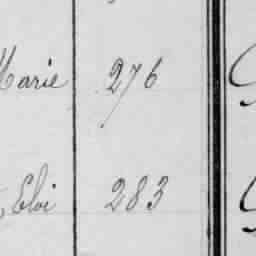 Marie 276
, Eloi 283